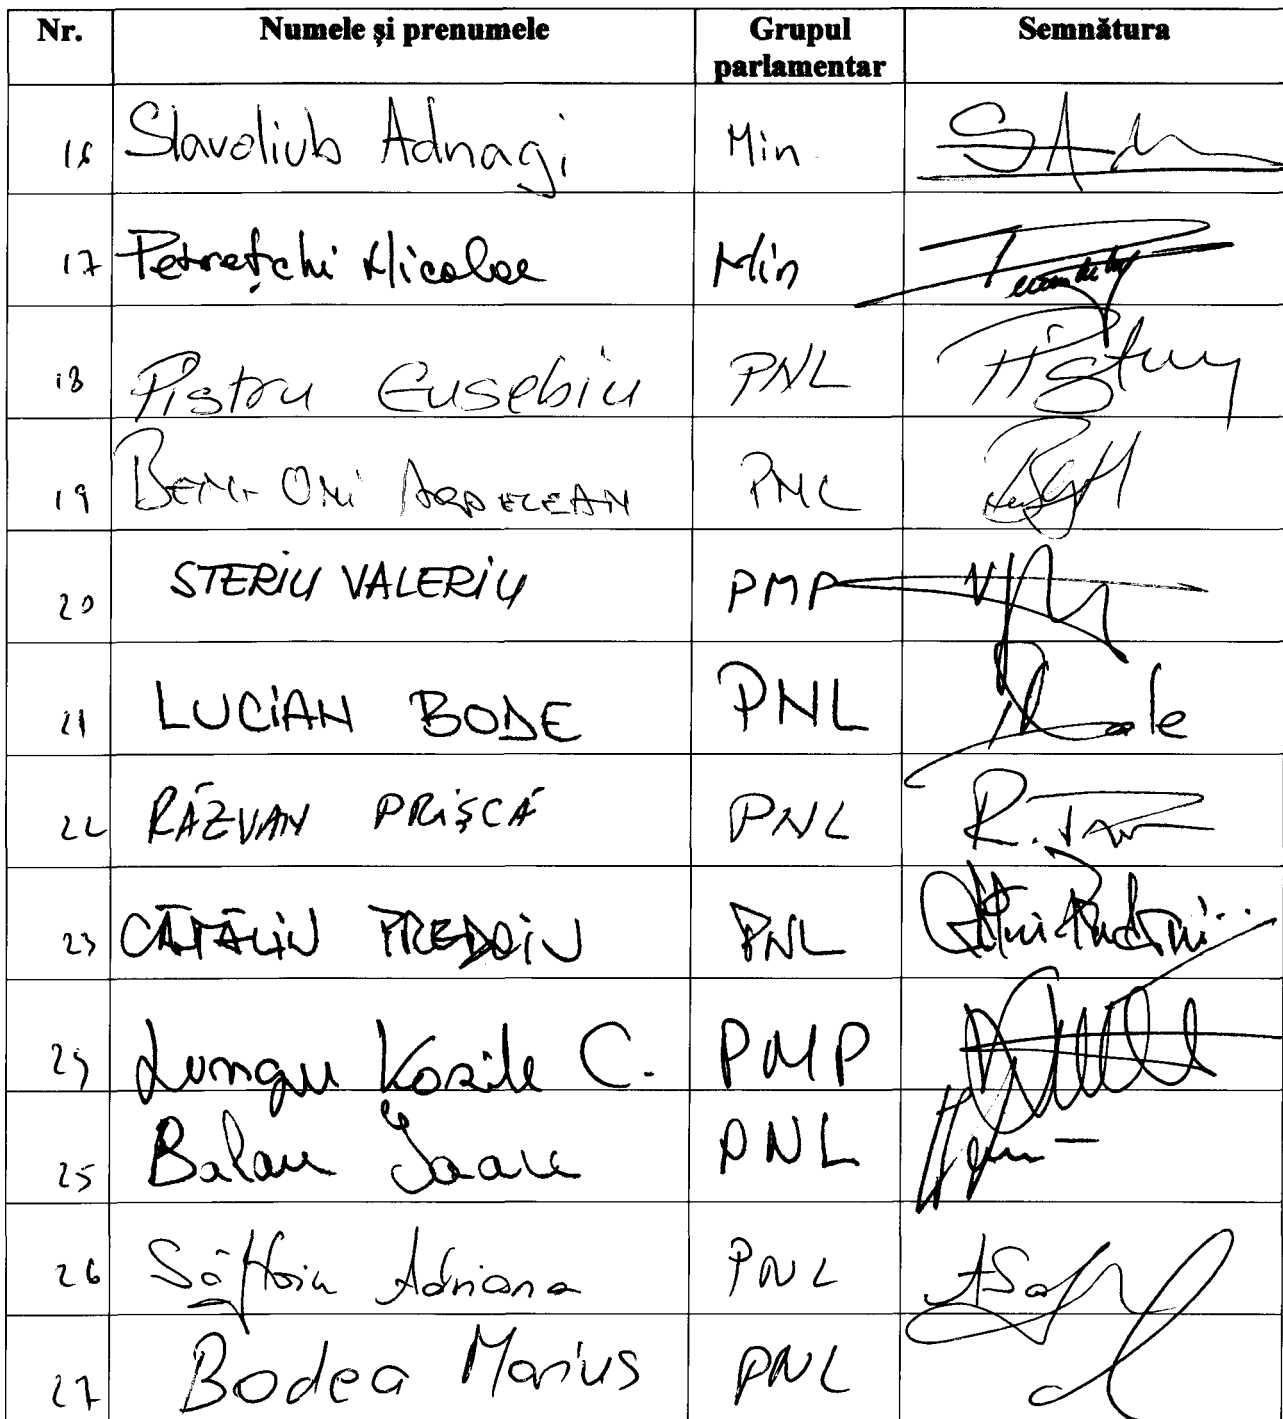 Nr. Numele și prenumele Grupul parlamentar Semnătura
16 Slavoliub Adnagi Min
17 Petrețchi Nicolae Min
18 Pistru Eusebiu PNL
19 BENI-ONI ARDELEAN PNL
20 STERIU VALERIU PMP
21 LUCIAN BODE PNL
22 RĂZVAN PRIȘCĂ PNL
23 CĂTĂLIN PREDOIU PNL
24 Lungu Vasile C. PMP
25 Balan Ioan PNL
26 Săftoiu Adriana PNL
27 Bodea Marius PNL